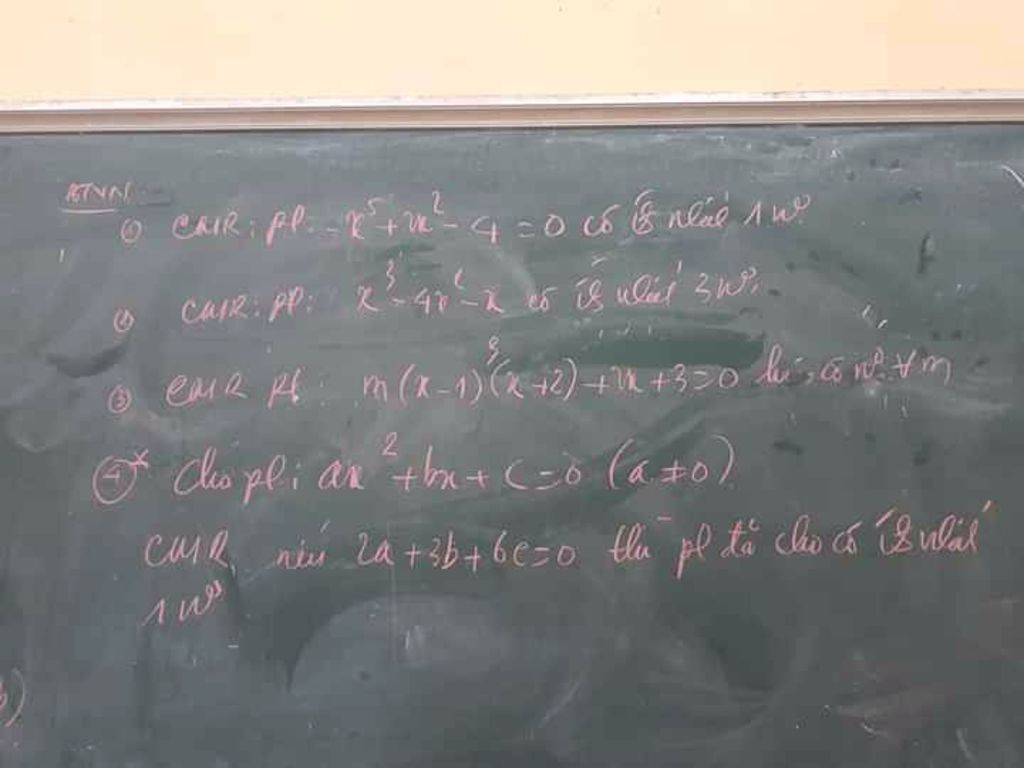 BTVN:
① CMR: pt: x⁵ + 2x² - 4 = 0 có ít nhất 1 n⁰
② CMR: pt: x³ - 4x² - x có ít nhất 3 n⁰.
③ CMR pt: m(x-1)³(x+2)+2x+3=0 luôn có n⁰ ∀m
④* Cho pt: ax² + bx + c = 0 (a ≠ 0)
CMR nếu 2a + 3b + 6c = 0 thì pt đã cho có ít nhất
1 n⁰